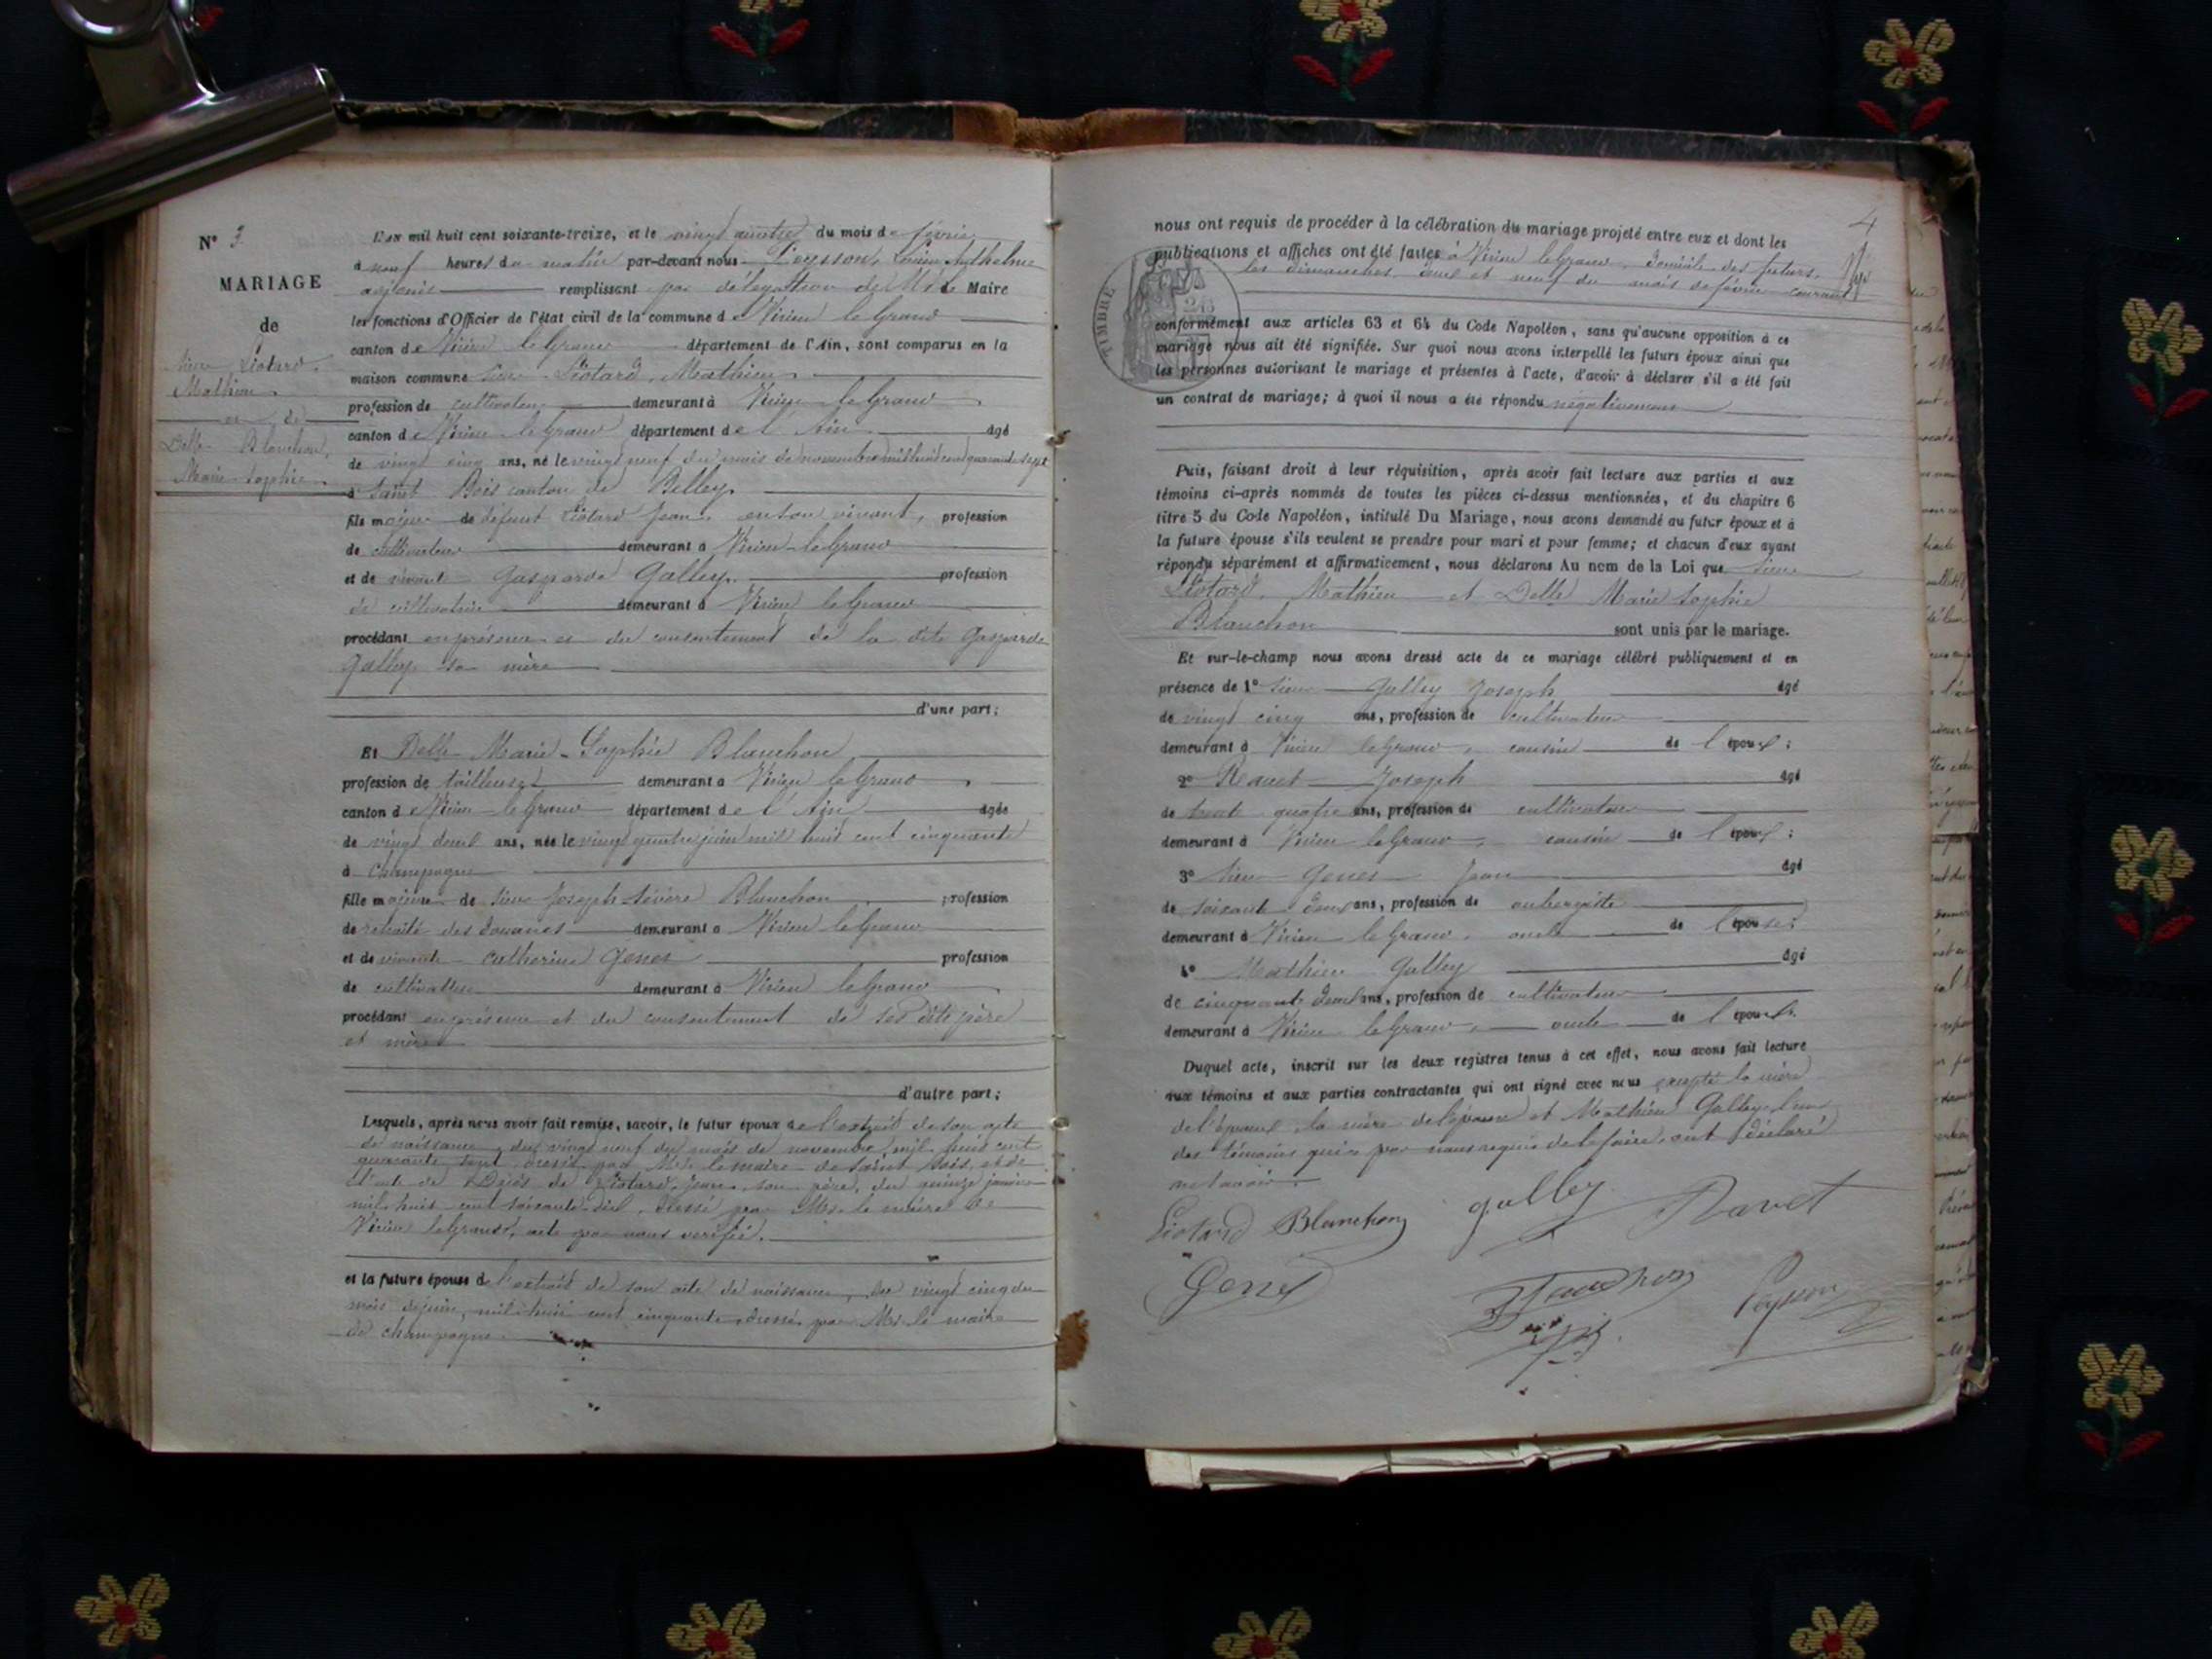 N° 3
MARIAGE
de
Sieur Liotard
Mathieu
et de
Delle Blanchon
Marie Sophie
L'an mil huit cent soixante-treize, et le vingt quatre du mois de février
à neuf heures du matin par-devant nous Peysson, Louis Anthelme
adjoint remplissant par délégation de Mr le Maire
les fonctions d'Officier de l'état civil de la commune de Virieu le Grand
canton de Virieu le Grand département de l'Ain, sont comparus en la
maison commune sieur Liotard, Mathieu
profession de cultivateur demeurant à Virieu le Grand
canton de Virieu le Grand département de l'Ain âgé
de vingt cinq ans, né le vingt neuf du mois de novembre mil huit cent quarante sept
à Saint Bois canton de Belley
fils majeur de défunt Liotard Jean, en son vivant, profession
de cultivateur demeurant à Virieu-le Grand
et de vivante Gasparde Galley profession
de cultivatrice demeurant à Virieu le Grand
procédant en présence et du consentement de la dite Gasparde
Galley sa mère
d'une part;
Et Delle Marie-Sophie Blanchon
profession de tailleuse demeurant à Virieu le Grand
canton de Virieu le Grand département de l'Ain âgée
de vingt deux ans, née le vingt quatre juin mil huit cent cinquante
à Champagne
fille majeure de sieur Joseph Sévère Blanchon profession
de retraité des douanes demeurant à Virieu le Grand
et de vivante Catherine Genet profession
de cultivatrice demeurant à Virieu le Grand
procédant en présence et du consentement de ses dits père
et mère
d'autre part;
Lesquels, après nous avoir fait remise, savoir, le futur époux de l'extrait de son acte
de naissance, du vingt neuf du mois de novembre mil huit cent
quarante sept, dressé par Mr le maire de Saint Bois, et de
l'acte de Décès de Liotard Jean, son père, du quinze janvier
mil huit cent soixante-dix, dressé par Mr le maire de
Virieu le Grand, acte par nous vérifié.
et la future épouse de l'extrait de son acte de naissance, du vingt cinq du
mois de juin, mil huit cent cinquante, dressé par Mr le maire
de Champagne.
4
nous ont requis de procéder à la célébration du mariage projeté entre eux et dont les
publications et affiches ont été faites à Virieu le Grand, domicile des futurs,
les dimanches, deux et neuf du mois de février courant
TIMBRE
conformément aux articles 63 et 64 du Code Napoléon, sans qu'aucune opposition à ce
mariage nous ait été signifiée. Sur quoi nous avons interpellé les futurs époux ainsi que
les personnes autorisant le mariage et présentes à l'acte, d'avoir à déclarer s'il a été fait
un contrat de mariage; à quoi il nous a été répondu négativement
Puis, faisant droit à leur réquisition, après avoir fait lecture aux parties et aux
témoins ci-après nommés de toutes les pièces ci-dessus mentionnées, et du chapitre 6
titre 5 du Code Napoléon, intitulé Du Mariage, nous avons demandé au futur époux et à
la future épouse s'ils veulent se prendre pour mari et pour femme; et chacun d'eux ayant
répondu séparément et affirmativement, nous déclarons Au nom de la Loi que sieur
Liotard, Mathieu et Delle Marie Sophie
Blanchon sont unis par le mariage.
Et sur-le-champ nous avons dressé acte de ce mariage célébré publiquement et en
présence de 1° sieur Galley Joseph âgé
de vingt cinq ans, profession de cultivateur
demeurant à Virieu le Grand, cousin de l'époux;
2° Ravet Joseph âgé
de trente quatre ans, profession de cultivateur
demeurant à Virieu le Grand, cousin de l'époux;
3° sieur Genet Jean âgé
de soixante deux ans, profession de aubergiste
demeurant à Virieu le Grand, oncle de l'épouse;
4° Mathieu Galley âgé
de cinquante deux ans, profession de cultivateur
demeurant à Virieu le Grand, oncle de l'époux.
Duquel acte, inscrit sur les deux registres tenus à cet effet, nous avons fait lecture
aux témoins et aux parties contractantes qui ont signé avec nous excepté la mère
de l'époux, la mère de l'épouse et Mathieu Galley l'un
des témoins qui par nous requis de le faire, ont déclaré
ne savoir.
Liotard Blanchon galley Ravet
Genet Blanchon Peysson